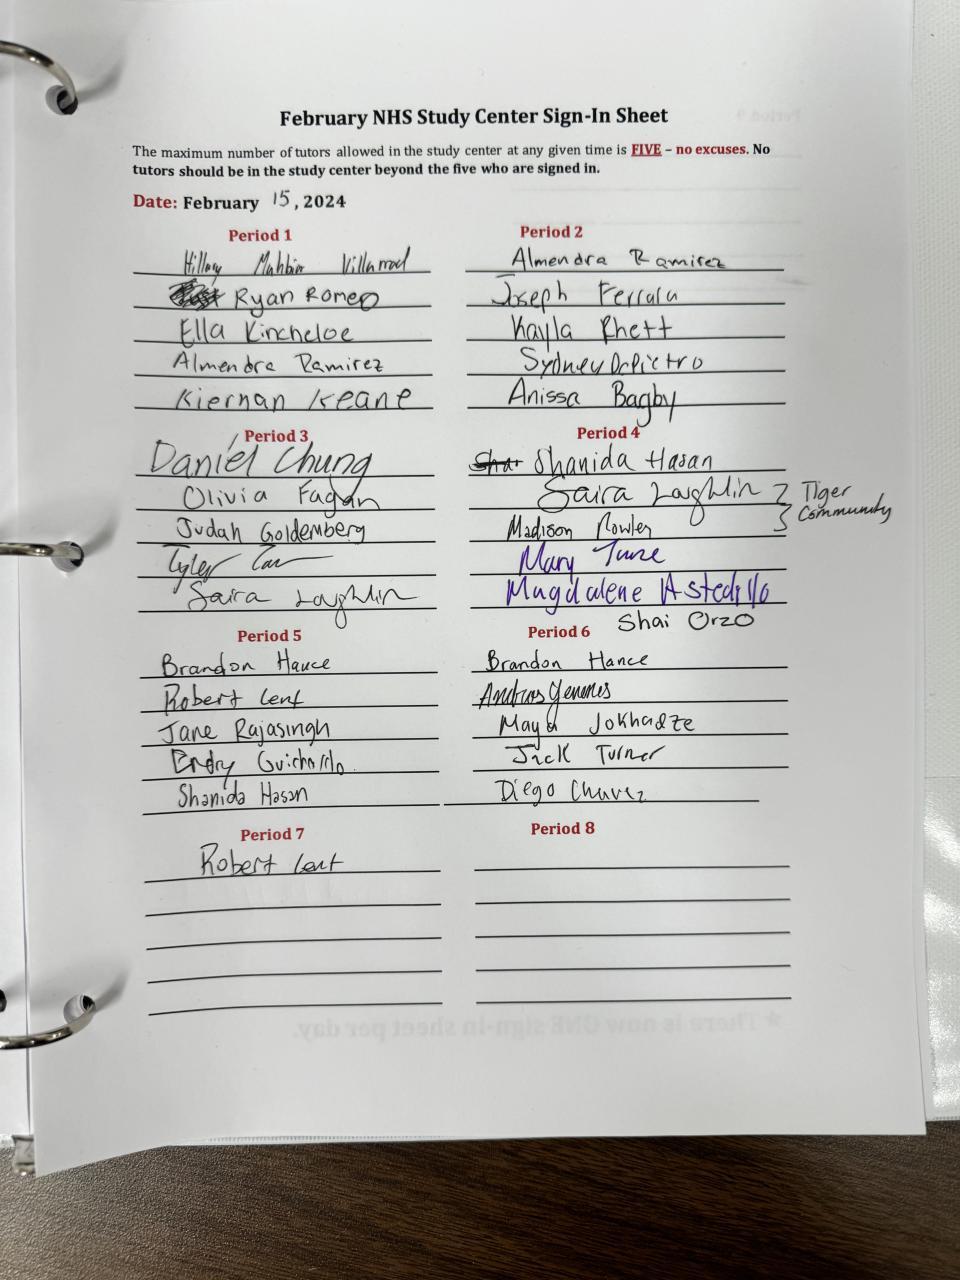 February NHS Study Center Sign-In Sheet
The maximum number of tutors allowed in the study center at any given time is FIVE – no excuses. No
tutors should be in the study center beyond the five who are signed in.
Date: February 15, 2024
Period 1
Hillary Villarreal
Ryan Romeo
Ella Kincheloe
Almendra Ramirez
Kiernan Keane
Period 2
Almendra Ramirez
Joseph Ferrara
Kayla Rhett
Sydney DePietro
Anissa Bagby
Period 3
Daniel Chung
Olivia Fagan
Judah Goldemberg
Tyler
Saira Loughlin
Period 4
Shanida Hasan
Saira Loughlin
Madison Rowley
Tiger
Community
Mary Tune
Magdalene Astedillo
Shai Orzo
Period 5
Brandon Hance
Robert Lent
Jane Rajasingh
Endry Guichardo
Shanida Hasan
Period 6
Brandon Hance
Maya Jokhadze
Jack Turner
Diego Chavez
Period 7
Robert Lent
Period 8
Period 9
* There is now ONE sign-in sheet per day.